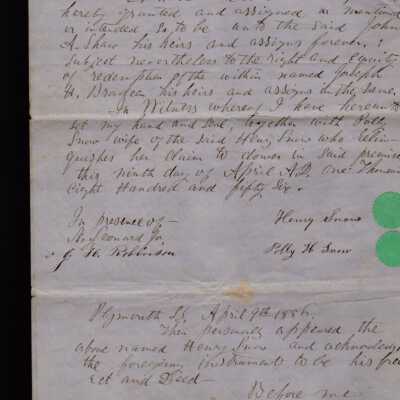 hereby granted and assigned as mentioned
or intended so to be unto the said John
A. Shaw his heirs and assigns forever:
subject nevertheless to the right and equity
of redemption of the within named Joseph
H. his heirs and assigns in the same.
In Witness whereof I have hereunto
set my hand and seal, together with Polly
Snow wife of the said Henry Snow who relin-
quishes her claim to dower in said premises
this ninth day of April A.D. One Thousand
Eight Hundred and fifty Six.
In presence of —
Leonard Jr.
Henry Snow
J. H. Robinson
Polly H Snow
Plymouth Ss, April 9th 1856.
Then personally appeared the
above named Henry Snow and acknowledg
the foregoing instrument to be his free
act and Deed —
Before me